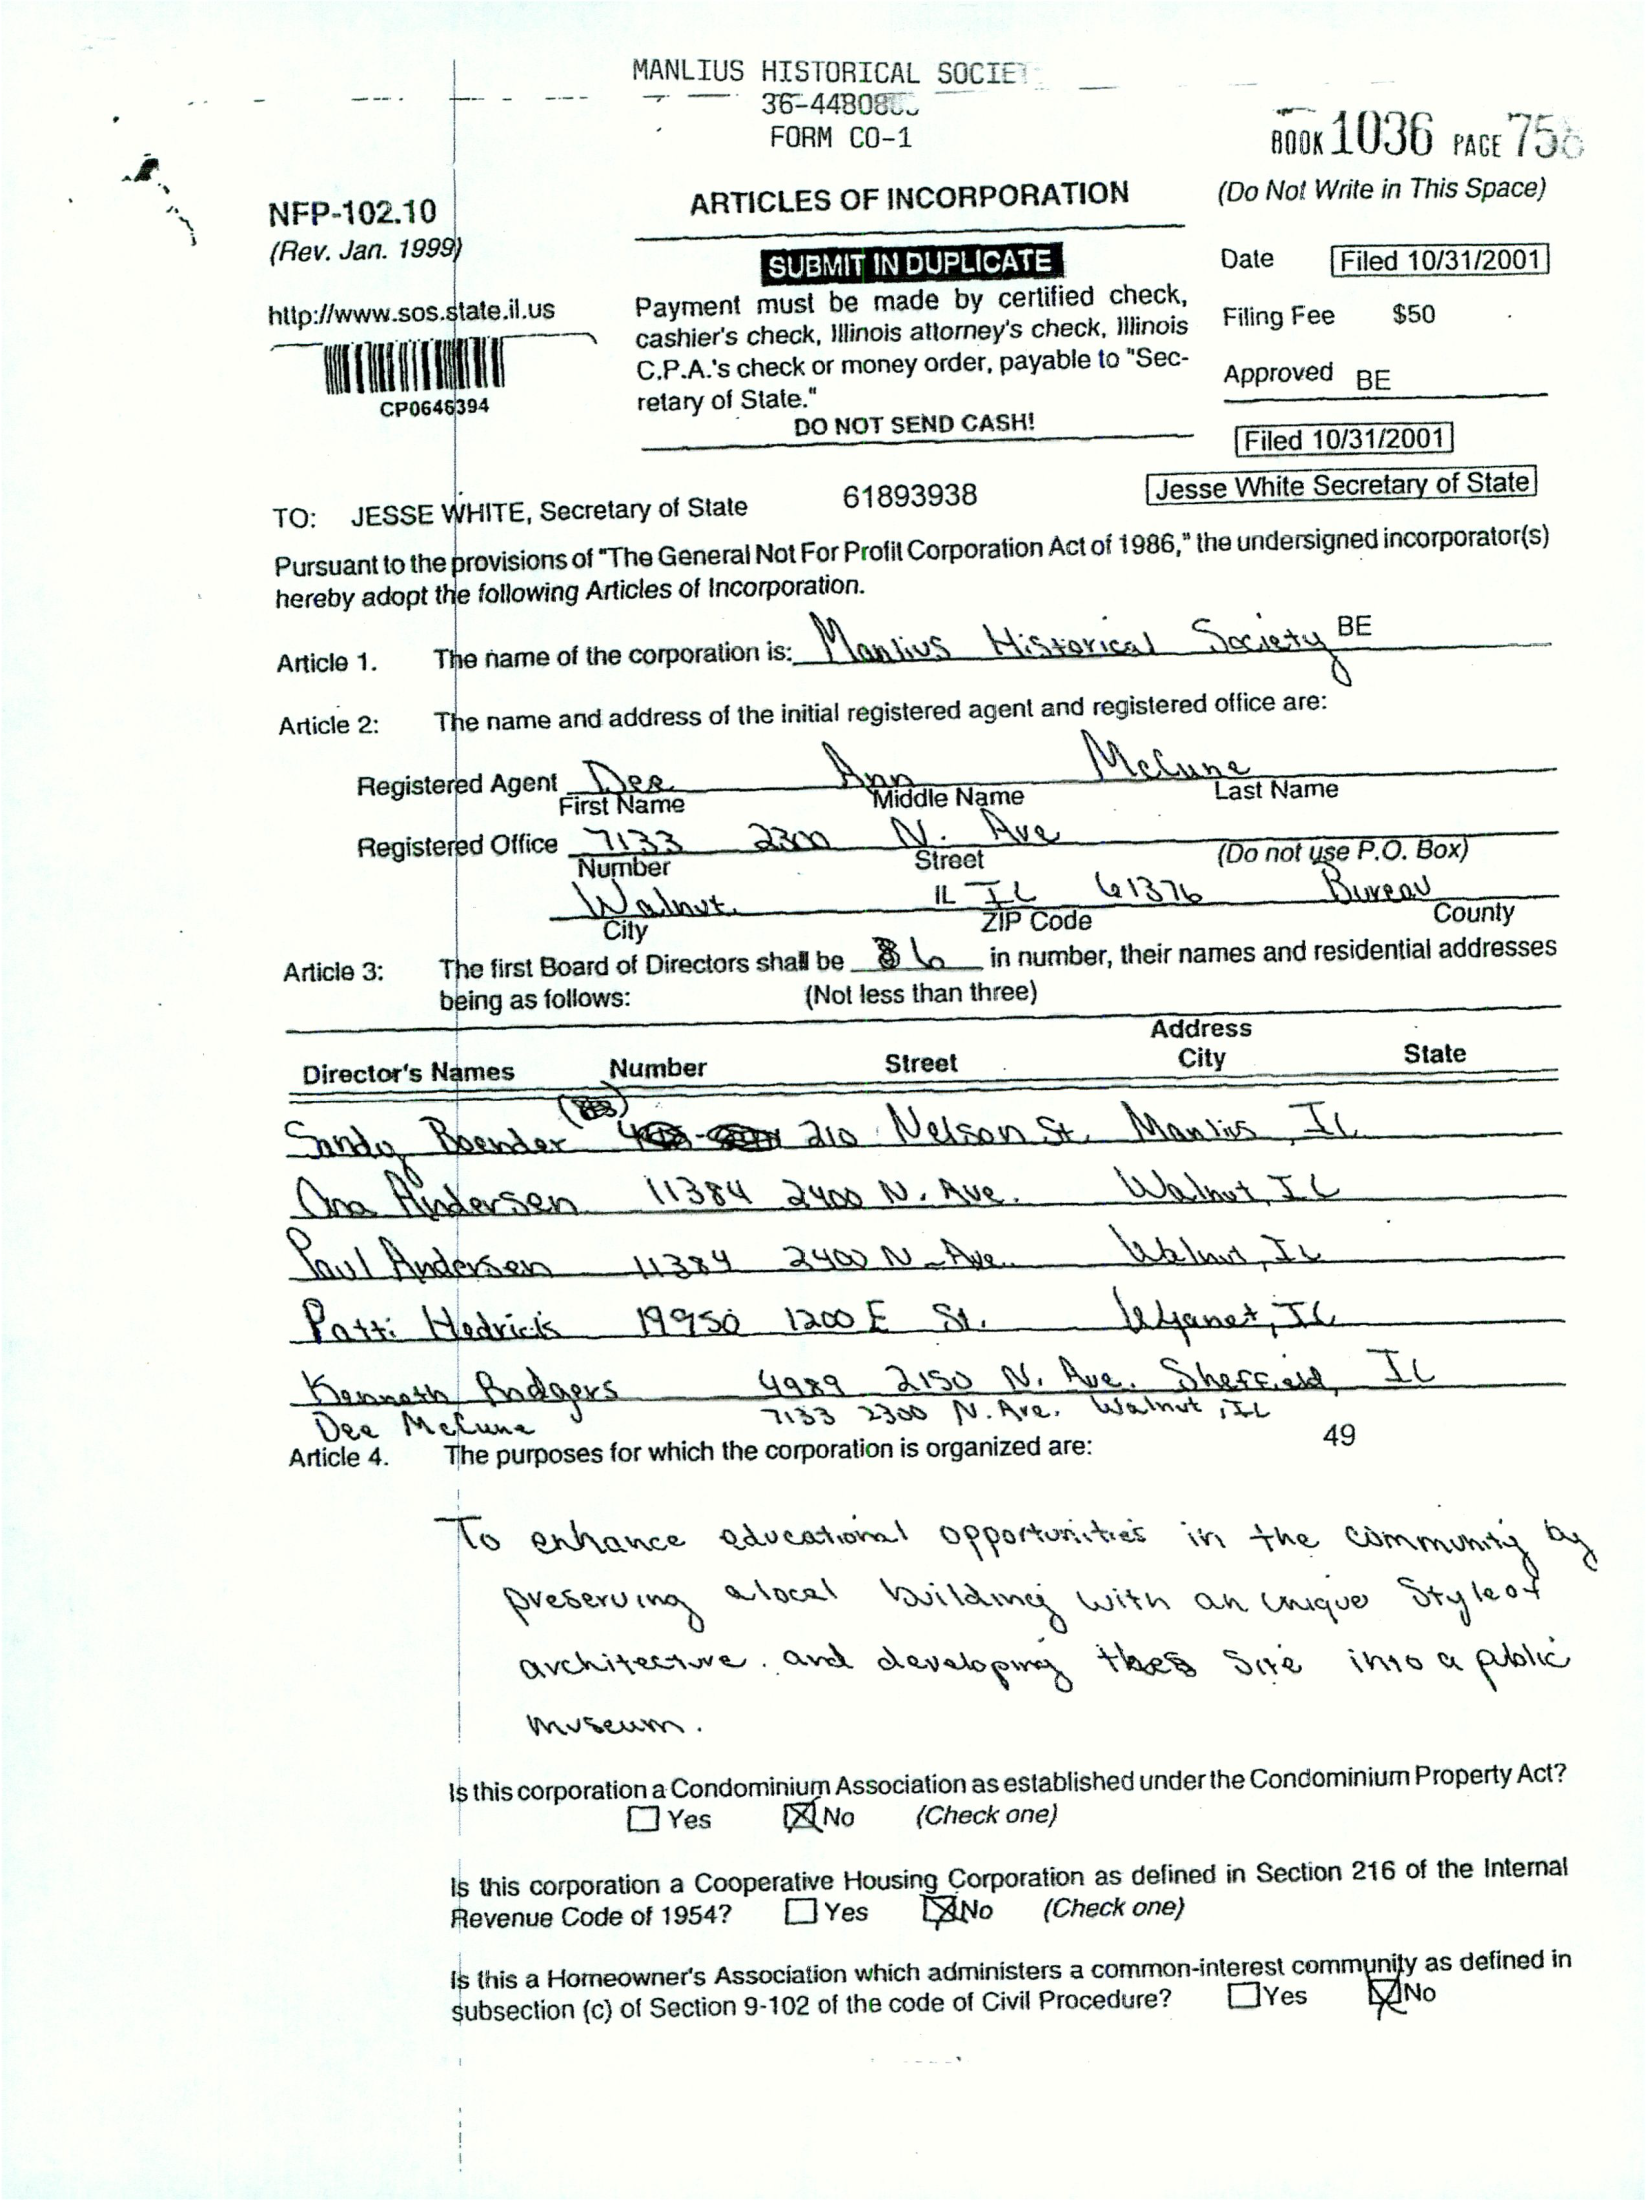 MANLIUS HISTORICAL SOCIET
36-44808
FORM CO-1
BOOK 1036 PAGE 75
NFP-102.10
(Rev. Jan. 1999)
http://www.sos.state.il.us
CP0646394
ARTICLES OF INCORPORATION
SUBMIT IN DUPLICATE
Payment must be made by certified check,
cashier's check, Illinois attorney's check, Illinois
C.P.A.'s check or money order, payable to "Sec-
retary of State."
DO NOT SEND CASH!
(Do Not Write in This Space)
Date Filed 10/31/2001
Filing Fee $50
Approved BE
Filed 10/31/2001
Jesse White Secretary of State
TO: JESSE WHITE, Secretary of State 61893938
Pursuant to the provisions of "The General Not For Profit Corporation Act of 1986," the undersigned incorporator(s)
hereby adopt the following Articles of Incorporation.
Article 1. The name of the corporation is: Manlius Historical Society BE
Article 2: The name and address of the initial registered agent and registered office are:
Registered Agent Dee Ann McCune
First Name Middle Name Last Name
Registered Office 7133 2300 N. Ave
Number Street (Do not use P.O. Box)
Walnut IL IL 61376 Bureau
City ZIP Code County
Article 3: The first Board of Directors shall be 6 in number, their names and residential addresses
being as follows: (Not less than three)
Address
Director's Names Number Street City State
Sandy Boender 210 Nelson St. Manlius, IL
Ona Andersen 11384 2400 N. Ave. Walnut, IL
Paul Andersen 11384 2400 N. Ave. Walnut, IL
Patti Hedrick 19950 1200 E St. Wyanet, IL
Kenneth Rodgers 4989 2150 N. Ave. Sheffield, IL
Dee McCune 7133 2300 N. Ave. Walnut, IL
49
Article 4. The purposes for which the corporation is organized are:
To enhance educational opportunities in the community by
preserving a local building with an unique style of
architecture. and developing site into a public
museum.
Is this corporation a Condominium Association as established under the Condominium Property Act?
Yes No (Check one)
Is this corporation a Cooperative Housing Corporation as defined in Section 216 of the Internal
Revenue Code of 1954? Yes No (Check one)
Is this a Homeowner's Association which administers a common-interest community as defined in
subsection (c) of Section 9-102 of the code of Civil Procedure? Yes No